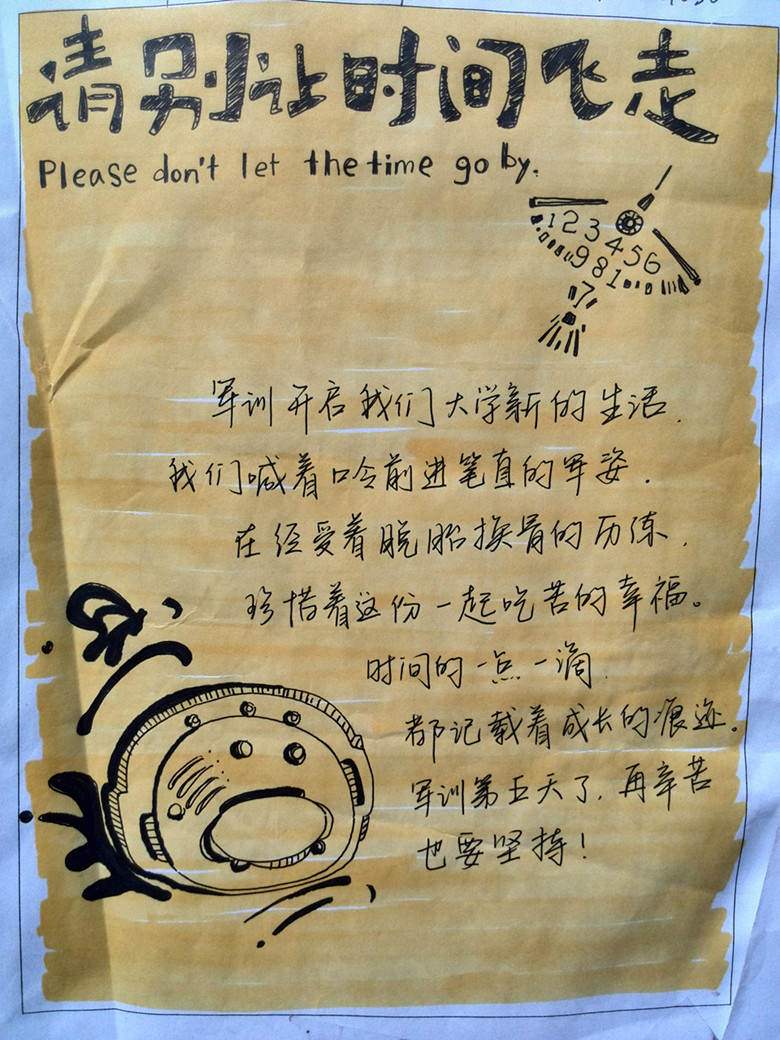 请别让时间飞走
Please don't let the time go by.
1 2 3 4 5 6
9 8 1
军训开启我们大学新的生活.
我们喊着口令前进笔直的军姿.
在经受着脱胎换骨的历练.
珍惜着这份一起吃苦的幸福。
时间的一点一滴.
都记载着成长的痕迹。
军训第五天了.再辛苦
也要坚持!